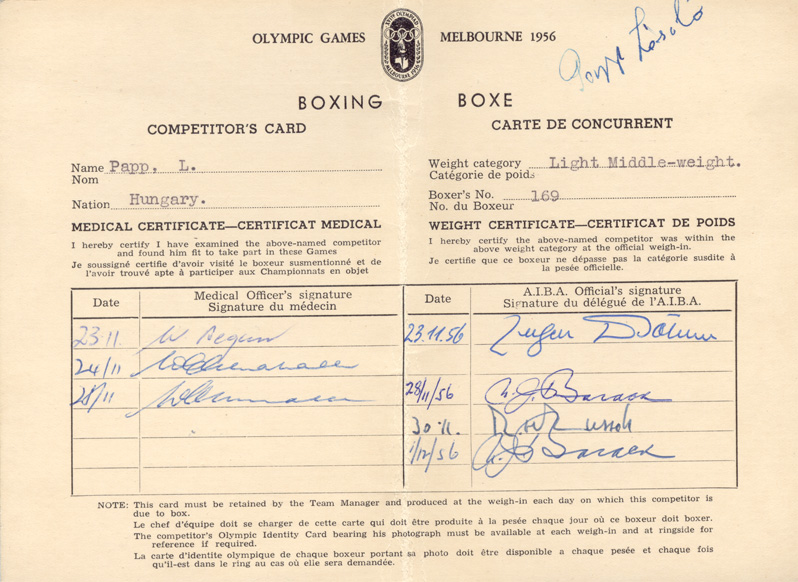 OLYMPIC GAMES
XVITH OLYMPIAD
MELBOURNE 1956
MELBOURNE 1956
Papp László
BOXING
BOXE
COMPETITOR'S CARD
CARTE DE CONCURRENT
Name Papp, L.
Nom
Nation Hungary.
Weight category Light Middle-weight.
Catégorie de poids
Boxer's No. 169
No. du Boxeur
MEDICAL CERTIFICATE—CERTIFICAT MEDICAL
I hereby certify I have examined the above-named competitor
and found him fit to take part in these Games
Je soussigné certifie d'avoir visité le boxeur susmentionné et de
l'avoir trouvé apte à participer aux Championnats en objet
WEIGHT CERTIFICATE—CERTIFICAT DE POIDS
I hereby certify the above-named competitor was within the
above weight category at the official weigh-in.
Je certifie que ce boxeur ne dépasse pas la catégorie susdite à
la pesée officielle.
Date
Medical Officer's signature
Signature du médecin
23 11.
24/11
28/11
Date
A.I.B.A. Official's signature
Signature du délégué de l'A.I.B.A.
23.11.56
28/11/56
30.11.
1/12/56
NOTE: This card must be retained by the Team Manager and produced at the weigh-in each day on which this competitor is
due to box.
Le chef d'équipe doit se charger de cette carte qui doit être produite à la pesée chaque jour où ce boxeur doit boxer.
The competitor's Olympic Identity Card bearing his photograph must be available at each weigh-in and at ringside for
reference if required.
La carte d'identite olympique de chaque boxeur portant sa photo doit être disponible a chaque pesée et chaque fois
qu'il-est dans le ring au cas où elle sera demandée.